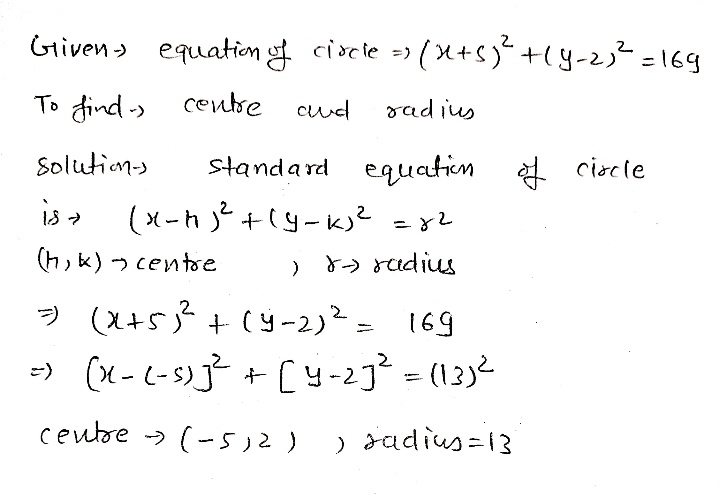 Given → equation of circle ⇒ (x+5)² + (y-2)² = 169
To find → centre and radius
Solution → standard equation of circle
is → (x-h)² + (y-k)² = r²
(h, k) → centre , r → radius
⇒ (x+5)² + (y-2)² = 169
⇒ (x-(-5)]² + [y-2]² = (13)²
centre → (-5, 2) , radius = 13